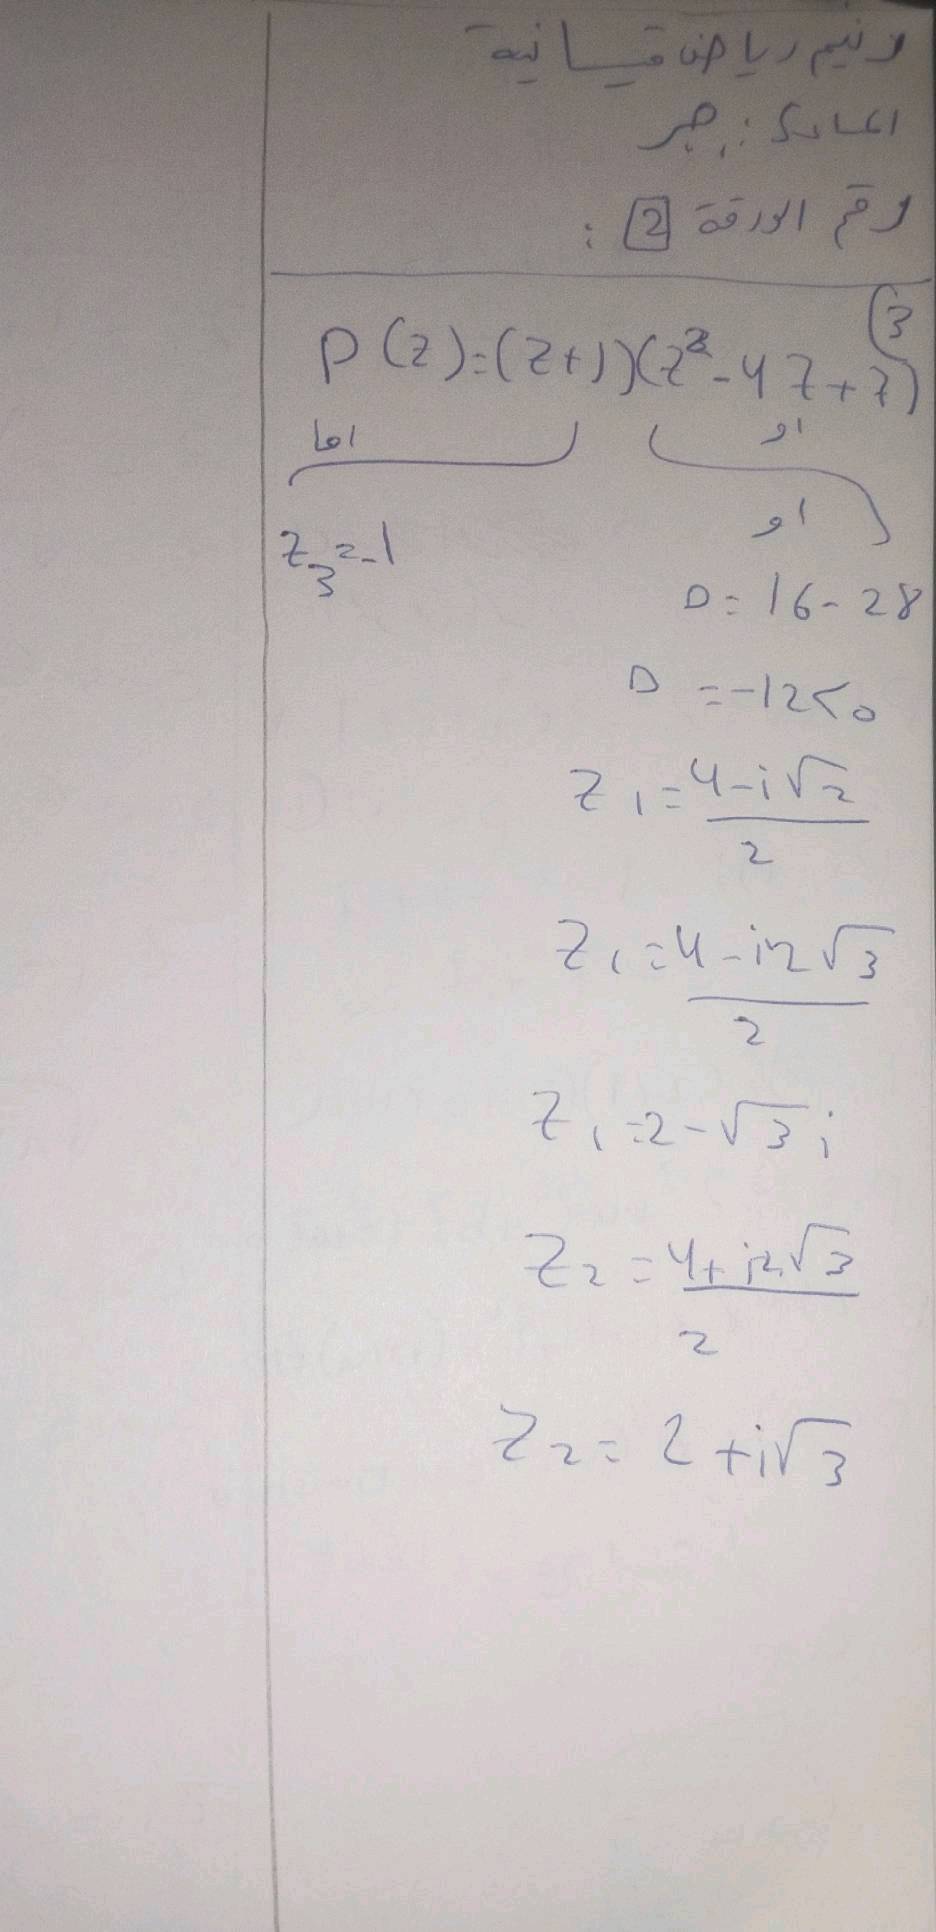 ونيم رياض قيسانية
المادة: جبر
رقم الورقة 2 :
(3
P(z)=(z+1)(z²-4z+7)
اما او
او
z₃=-1
Δ=16-28
Δ=-12<0
Z₁=(4-i√2)/2
Z₁=(4-i2√3)/2
Z₁=2-√3i
Z₂=(4+i2√3)/2
Z₂=2+i√3